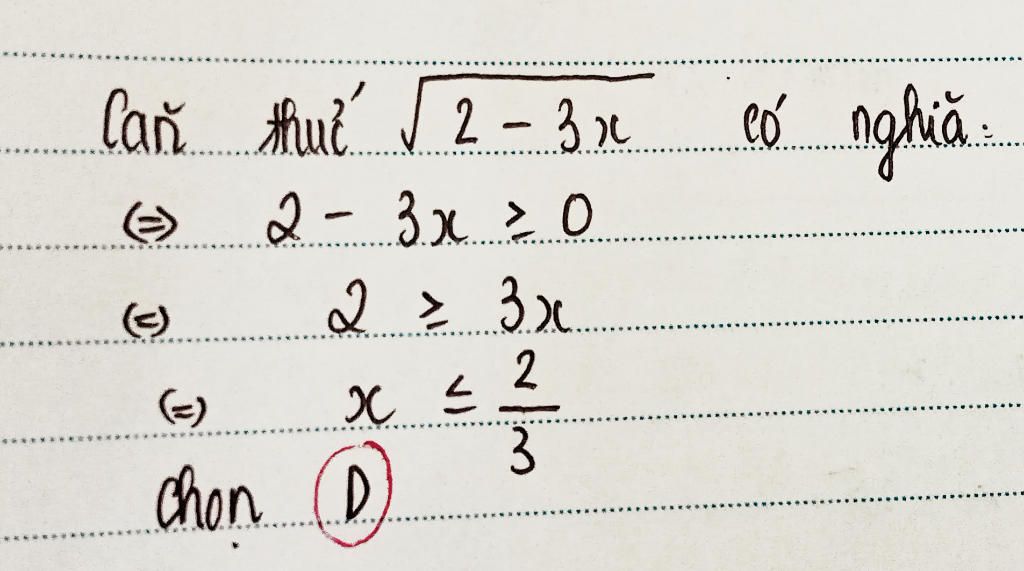 Căn thức √(2 - 3x) có nghĩa:
(=) 2 - 3x ≥ 0
(=) 2 ≥ 3x
(=) x ≤ 2/3
chọn D